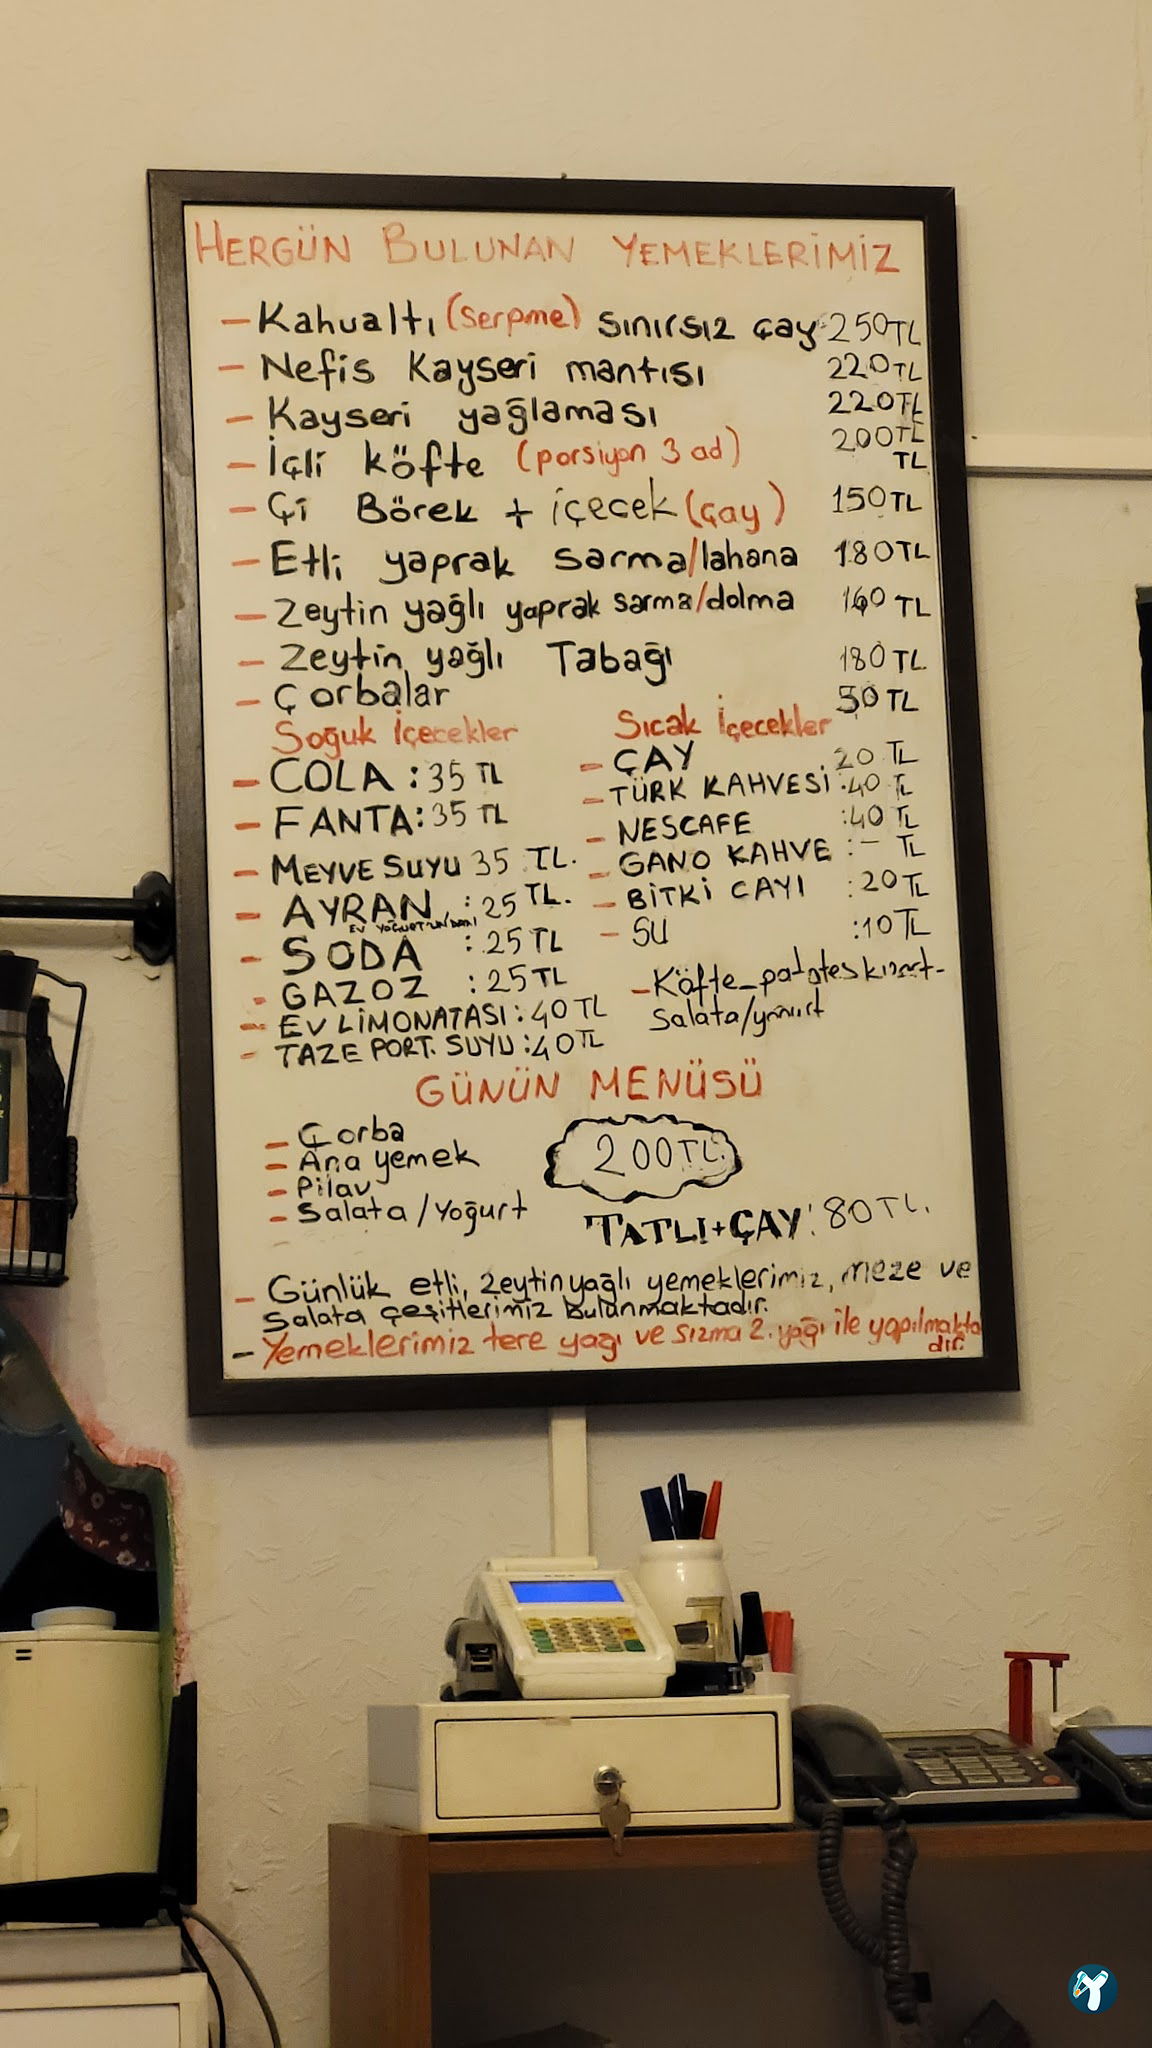 HERGÜN BULUNAN YEMEKLERİMİZ
- Kahvaltı (serpme) sınırsız çay 250TL
- Nefis Kayseri mantısı 220TL
- Kayseri yağlaması 220TL
- İçli köfte (porsiyon 3 ad) 200TL
TL
- Çi Börek + içecek (çay) 150TL
- Etli yaprak sarma/lahana 180TL
- Zeytin yağlı yaprak sarma/dolma 160 TL
- Zeytin yağlı Tabağı 180TL
- Çorbalar 50 TL
Soğuk İçecekler
- COLA : 35 TL
- FANTA : 35 TL
- MEYVE SUYU 35 TL.
- AYRAN : 25 TL.
EV YOĞURT'UNDAN
- SODA : 25TL
- GAZOZ : 25TL
- EV LİMONATASI : 40TL
- TAZE PORT. SUYU : 40TL
Sıcak İçecekler
- ÇAY 20 TL
- TÜRK KAHVESİ : 40 TL
- NESCAFE : 40 TL
- GANO KAHVE : - TL
- BİTKİ ÇAYI : 20TL
- SU : 10TL
- Köfte_patateskızart-
Salata/yoğurt
GÜNÜN MENÜSÜ
- Çorba
- Ana yemek
- Pilav
- Salata / Yoğurt
200TL.
TATLI+ÇAY : 80TL.
- Günlük etli, Zeytinyağlı yemeklerimiz, meze ve
Salata çeşitlerimiz bulunmaktadır.
- Yemeklerimiz tere yağı ve sızma Z. yağı ile yapılmakta
dır.